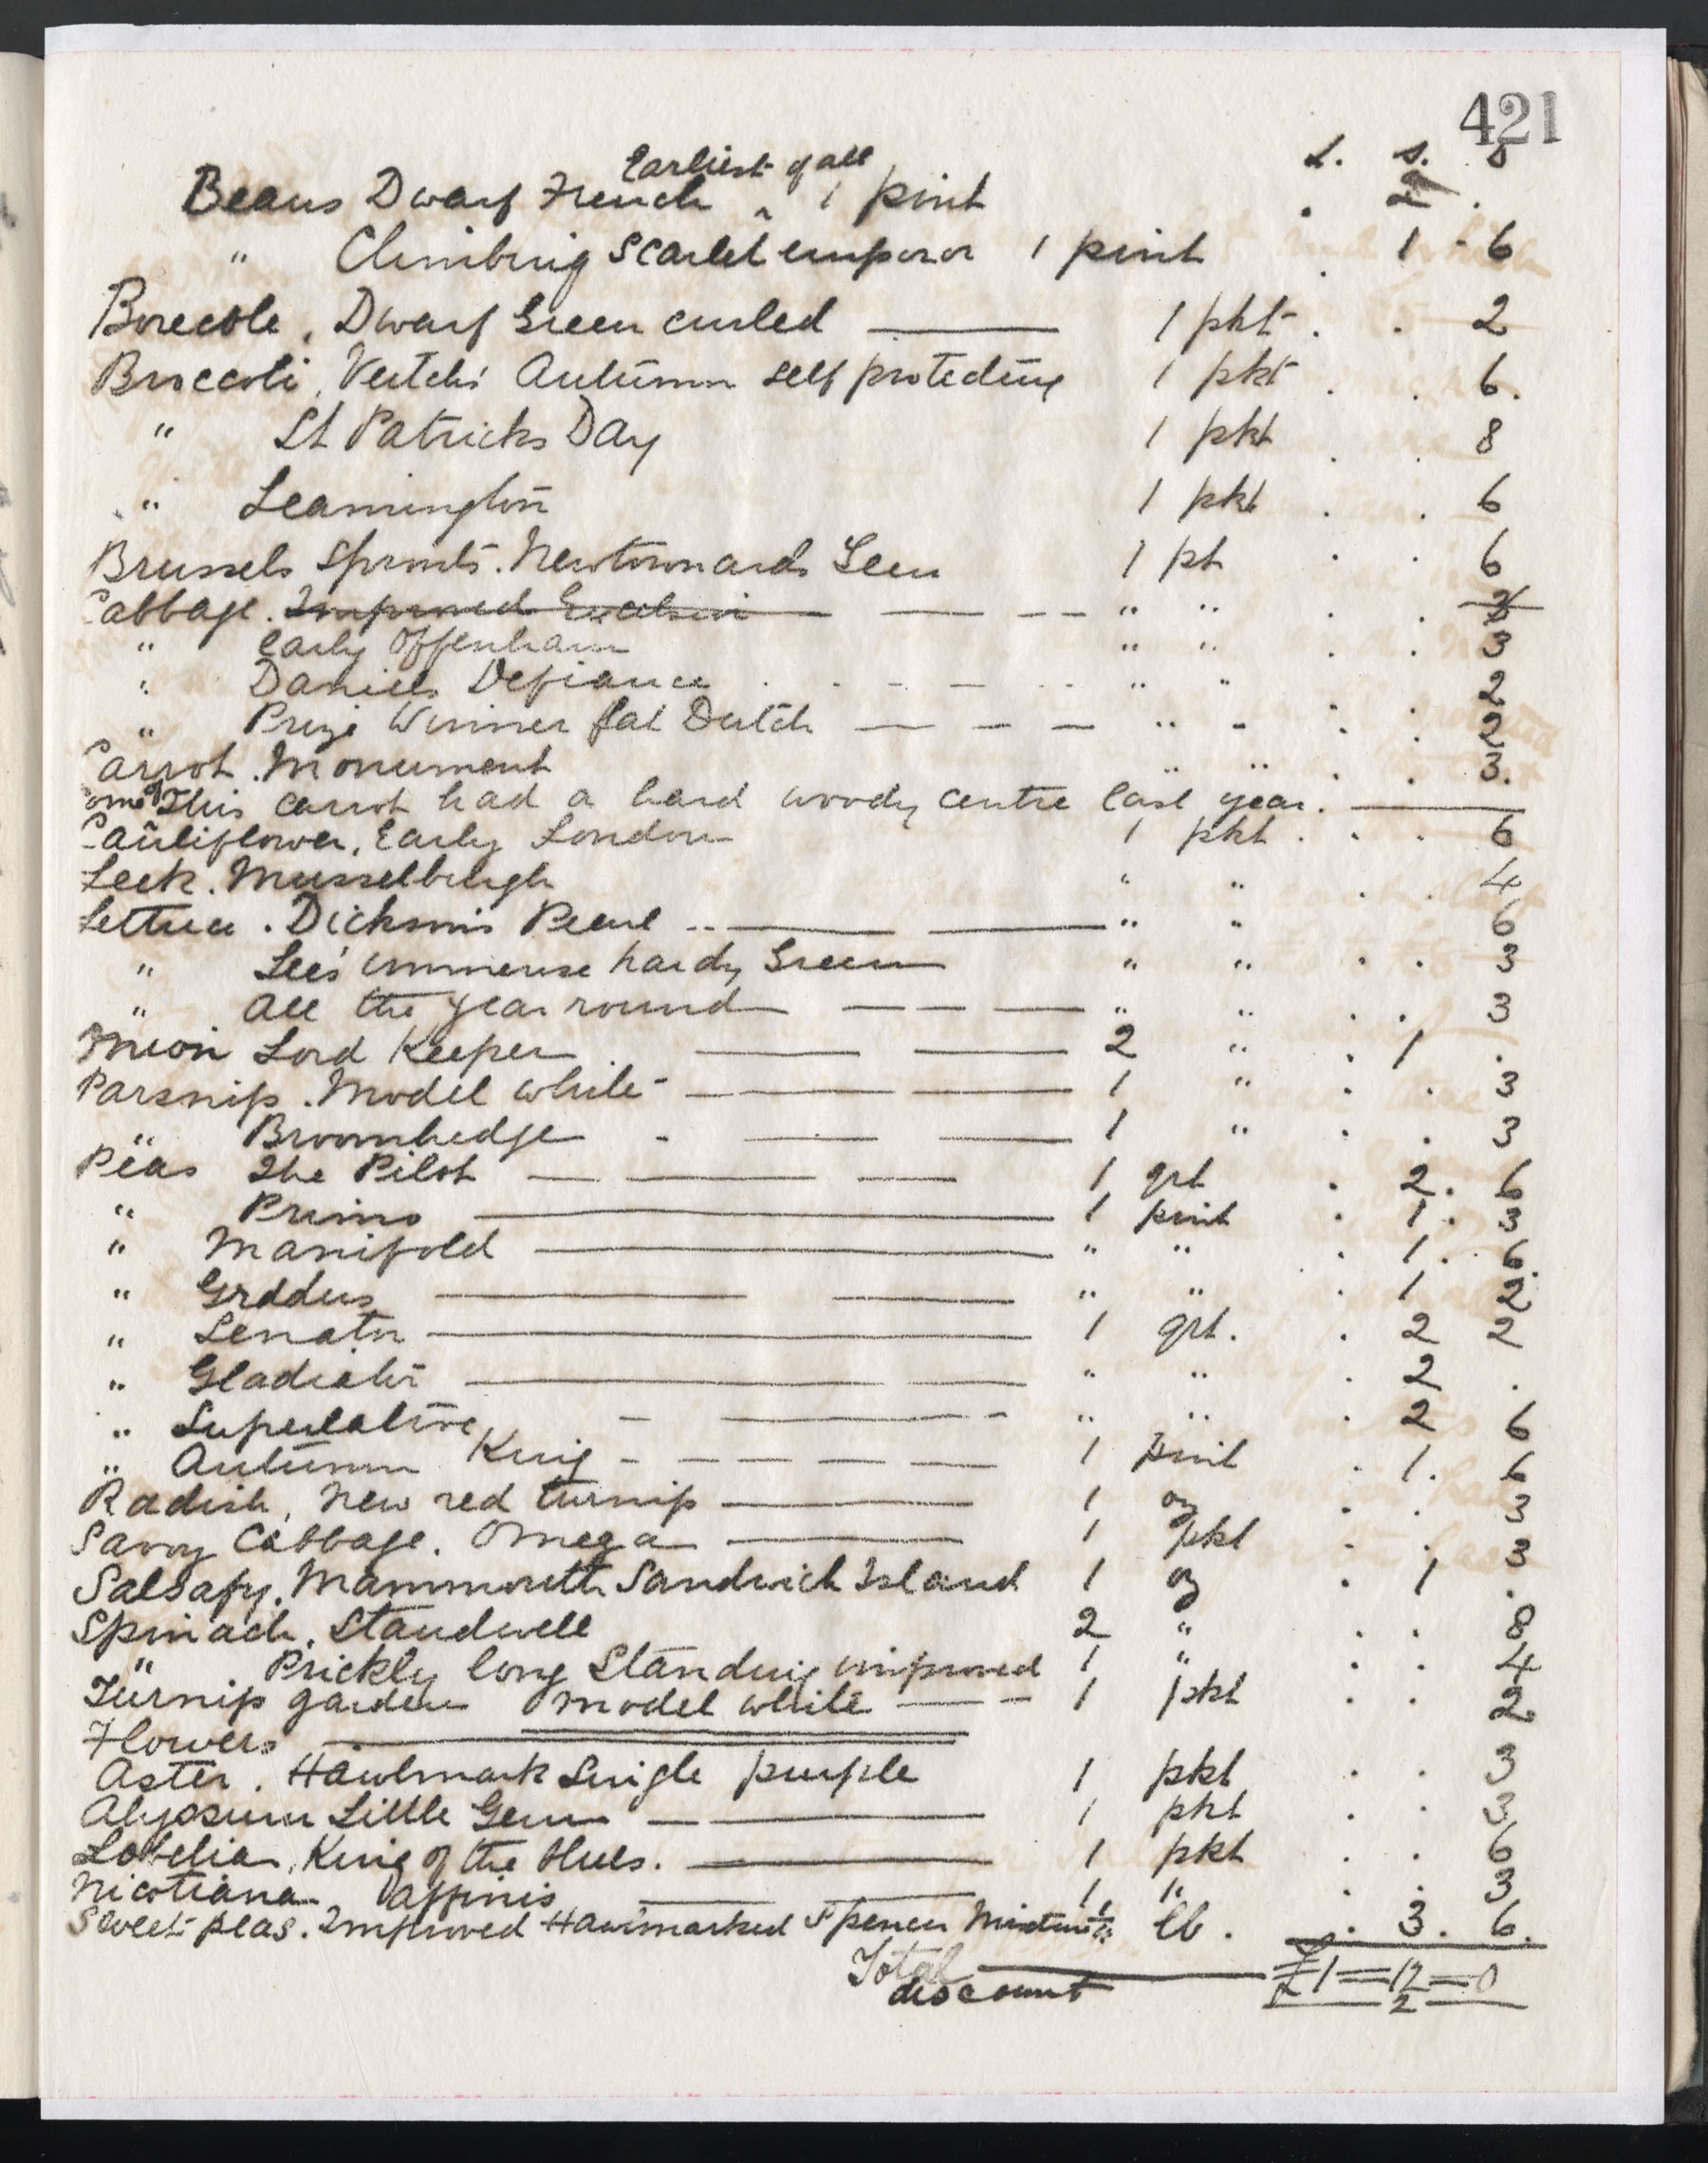 421
£. s. D
Beans Dwarf French ^ Earliest of all 1 pint . 2 .
" Climbing Scarlet emperor 1 pint . 1 - 6
Borecole, Dwarf Green curled — 1 pkt . . 2
Broccoli, Veitchs' Autumn self protecting 1 pkt . . 6.
" St Patricks Day 1 pkt . . 8
" Leamington 1 pkt . . 6
Brussels Sprouts. Newtownards Gem 1 pt . . 6
Cabbage. Improved Excelsior — — — " " . .
" Early Offenham " " . . 3
" Daniels Defiance . - - — - - " " . . 2
" Prize Winner flat Dutch — — — " " . . 2
Carrot. Monument " " . . 3.
some of This carrot had a hard woody centre last year. —
Cauliflower, Early London 1 pkt . . . 6
Leek. Musselburgh " " . . 4
Lettuce. Dicksons Pearl .. — — " " 6
" Lee's immense hardy Green " " . . 3
" all the year round — — — " " . . 3
Onion Lord Keeper . — — 2 " . 1 .
Parsnip. Model white — — 1 " . . 3
" Broomhedge - — — 1 " . . 3
Peas The Pilot — — — 1 qrt . 2. 6
" Primo — 1 pint . 1. 3
" Manifold — " " . 1. 6.
" Graddus — — " " . 1 2
" Senator — 1 qrt. . 2 2
" Gladiator — — " " . 2 .
" Superlative - — - " " . 2 6
" Autumn King - — — — — 1 pint . 1. 6
Radish, New red turnip — 1 oz . . 3
Savoy Cabbage. Omega — 1 pkt . . 3
Salsafy. Mammouth Sandwich Island 1 oz . 1 .
Spinach. Standwell 2 " . . 8
" Prickly long Standing improved 1 " . . 4
Turnip garden model white — - 1 pkt . . 2
Flowers —
Aster. Hawlmark Single purple 1 pkt . . 3
Alyssum Little Gem — — 1 pkt . . 3
Lobelia, King of the blues. — 1 pkt . . 6
Nicotiana affinis — — 1 " . . 3
Sweet peas. Improved Hawlmarked Spencer Mixture ¼ lb. . 3. 6.
Total — £1=12=0
discount 2